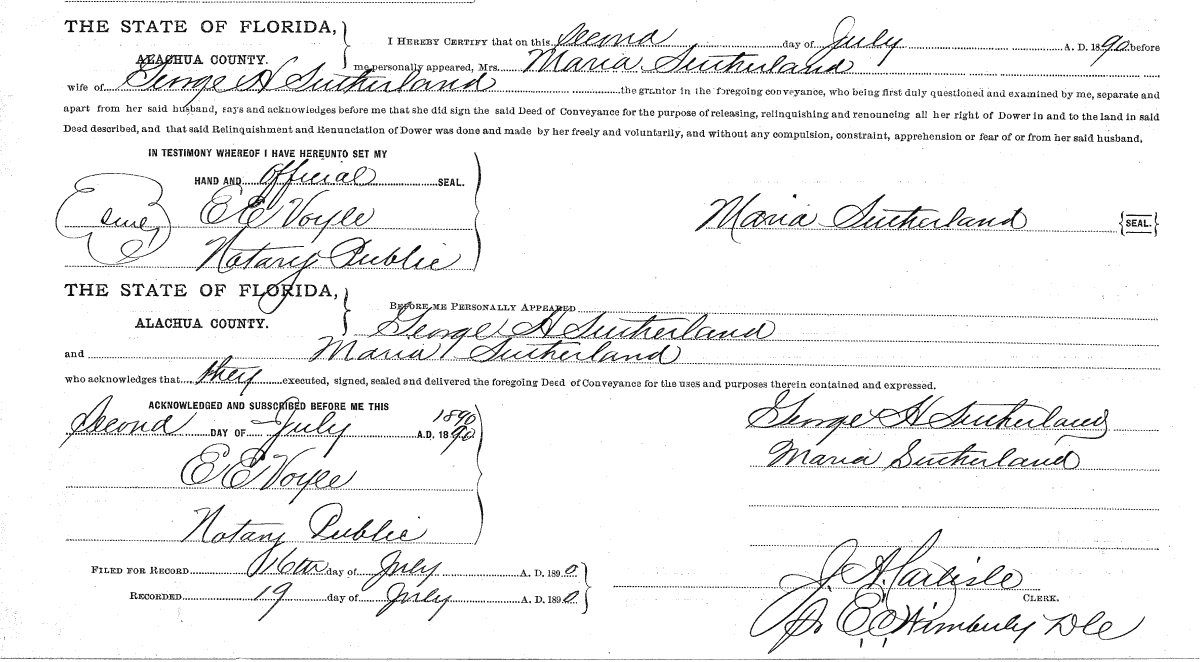 THE STATE OF FLORIDA,
ALACHUA COUNTY.
I HEREBY CERTIFY that on this Second day of July A. D. 1890 before
me personally appeared, Mrs. Maria Sutherland
wife of George H Sutherland the grantor in the foregoing conveyance, who being first duly questioned and examined by me, separate and
apart from her said husband, says and acknowledges before me that she did sign the said Deed of Conveyance for the purpose of releasing, relinquishing and renouncing all her right of Dower in and to the land in said
Deed described, and that said Relinquishment and Renunciation of Dower was done and made by her freely and voluntarily, and without any compulsion, constraint, apprehension or fear of or from her said husband.
IN TESTIMONY WHEREOF I HAVE HEREUNTO SET MY
HAND AND official SEAL.
E E Voyle
Notary Public
Maria Sutherland {SEAL.}
THE STATE OF FLORIDA,
ALACHUA COUNTY.
BEFORE ME PERSONALLY APPEARED
George H Sutherland
and Maria Sutherland
who acknowledges that they executed, signed, sealed and delivered the foregoing Deed of Conveyance for the uses and purposes therein contained and expressed.
ACKNOWLEDGED AND SUBSCRIBED BEFORE ME THIS
1890
Second DAY OF July A.D. 1890
E E Voyle
Notary Public
George H Sutherland
Maria Sutherland
FILED FOR RECORD 16th day of July A. D. 1890
RECORDED 19 day of July A. D. 1890
J. A. Carlisle
CLERK.
Wimberly